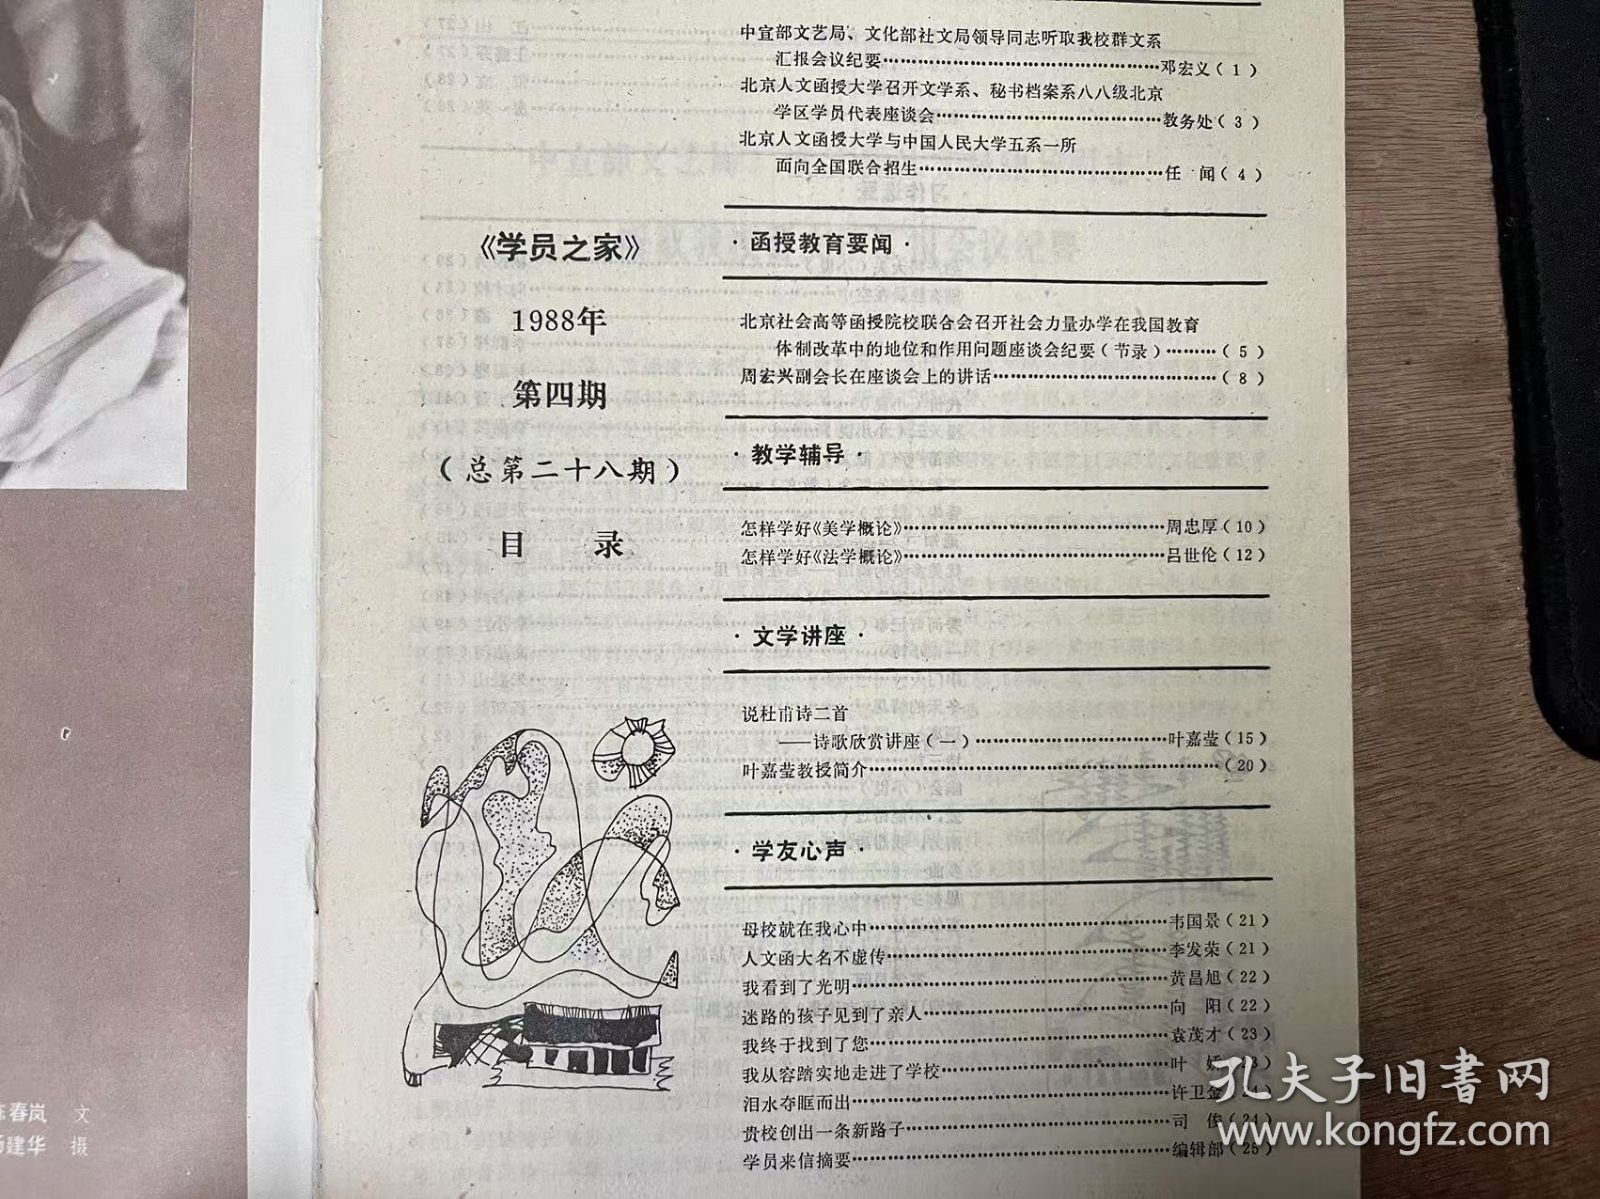 《学员之家》
1988年
第四期
（总第二十八期）
目　录
中宣部文艺局、文化部社文局领导同志听取我校群文系
汇报会议纪要……………………………………邓宏义（1）
北京人文函授大学召开文学系、秘书档案系八八级北京
学区学员代表座谈会……………………………教务处（3）
北京人文函授大学与中国人民大学五系一所
面向全国联合招生………………………………任　闻（4）
·函授教育要闻·
北京社会高等函授院校联合会召开社会力量办学在我国教育
体制改革中的地位和作用问题座谈会纪要（节录）………（5）
周宏兴副会长在座谈会上的讲话……………………………（8）
·教学辅导·
怎样学好《美学概论》…………………………………周忠厚（10）
怎样学好《法学概论》…………………………………吕世伦（12）
·文学讲座·
说杜甫诗二首
——诗歌欣赏讲座（一）………………………叶嘉莹（15）
叶嘉莹教授简介……………………………………………（20）
·学友心声·
母校就在我心中………………………………………韦国景（21）
人文函大名不虚传……………………………………李发荣（21）
我看到了光明…………………………………………黄昌旭（22）
迷路的孩子见到了亲人………………………………向　阳（22）
我终于找到了您………………………………………袁茂才（23）
我从容踏实地走进了学校……………………………叶
泪水夺眶而出…………………………………………许卫金（24）
贵校创出一条新路子…………………………………司　俊（24）
学员来信摘要…………………………………………编辑部（25）
春岚　文
建华　摄
孔夫子旧书网
www.kongfz.com